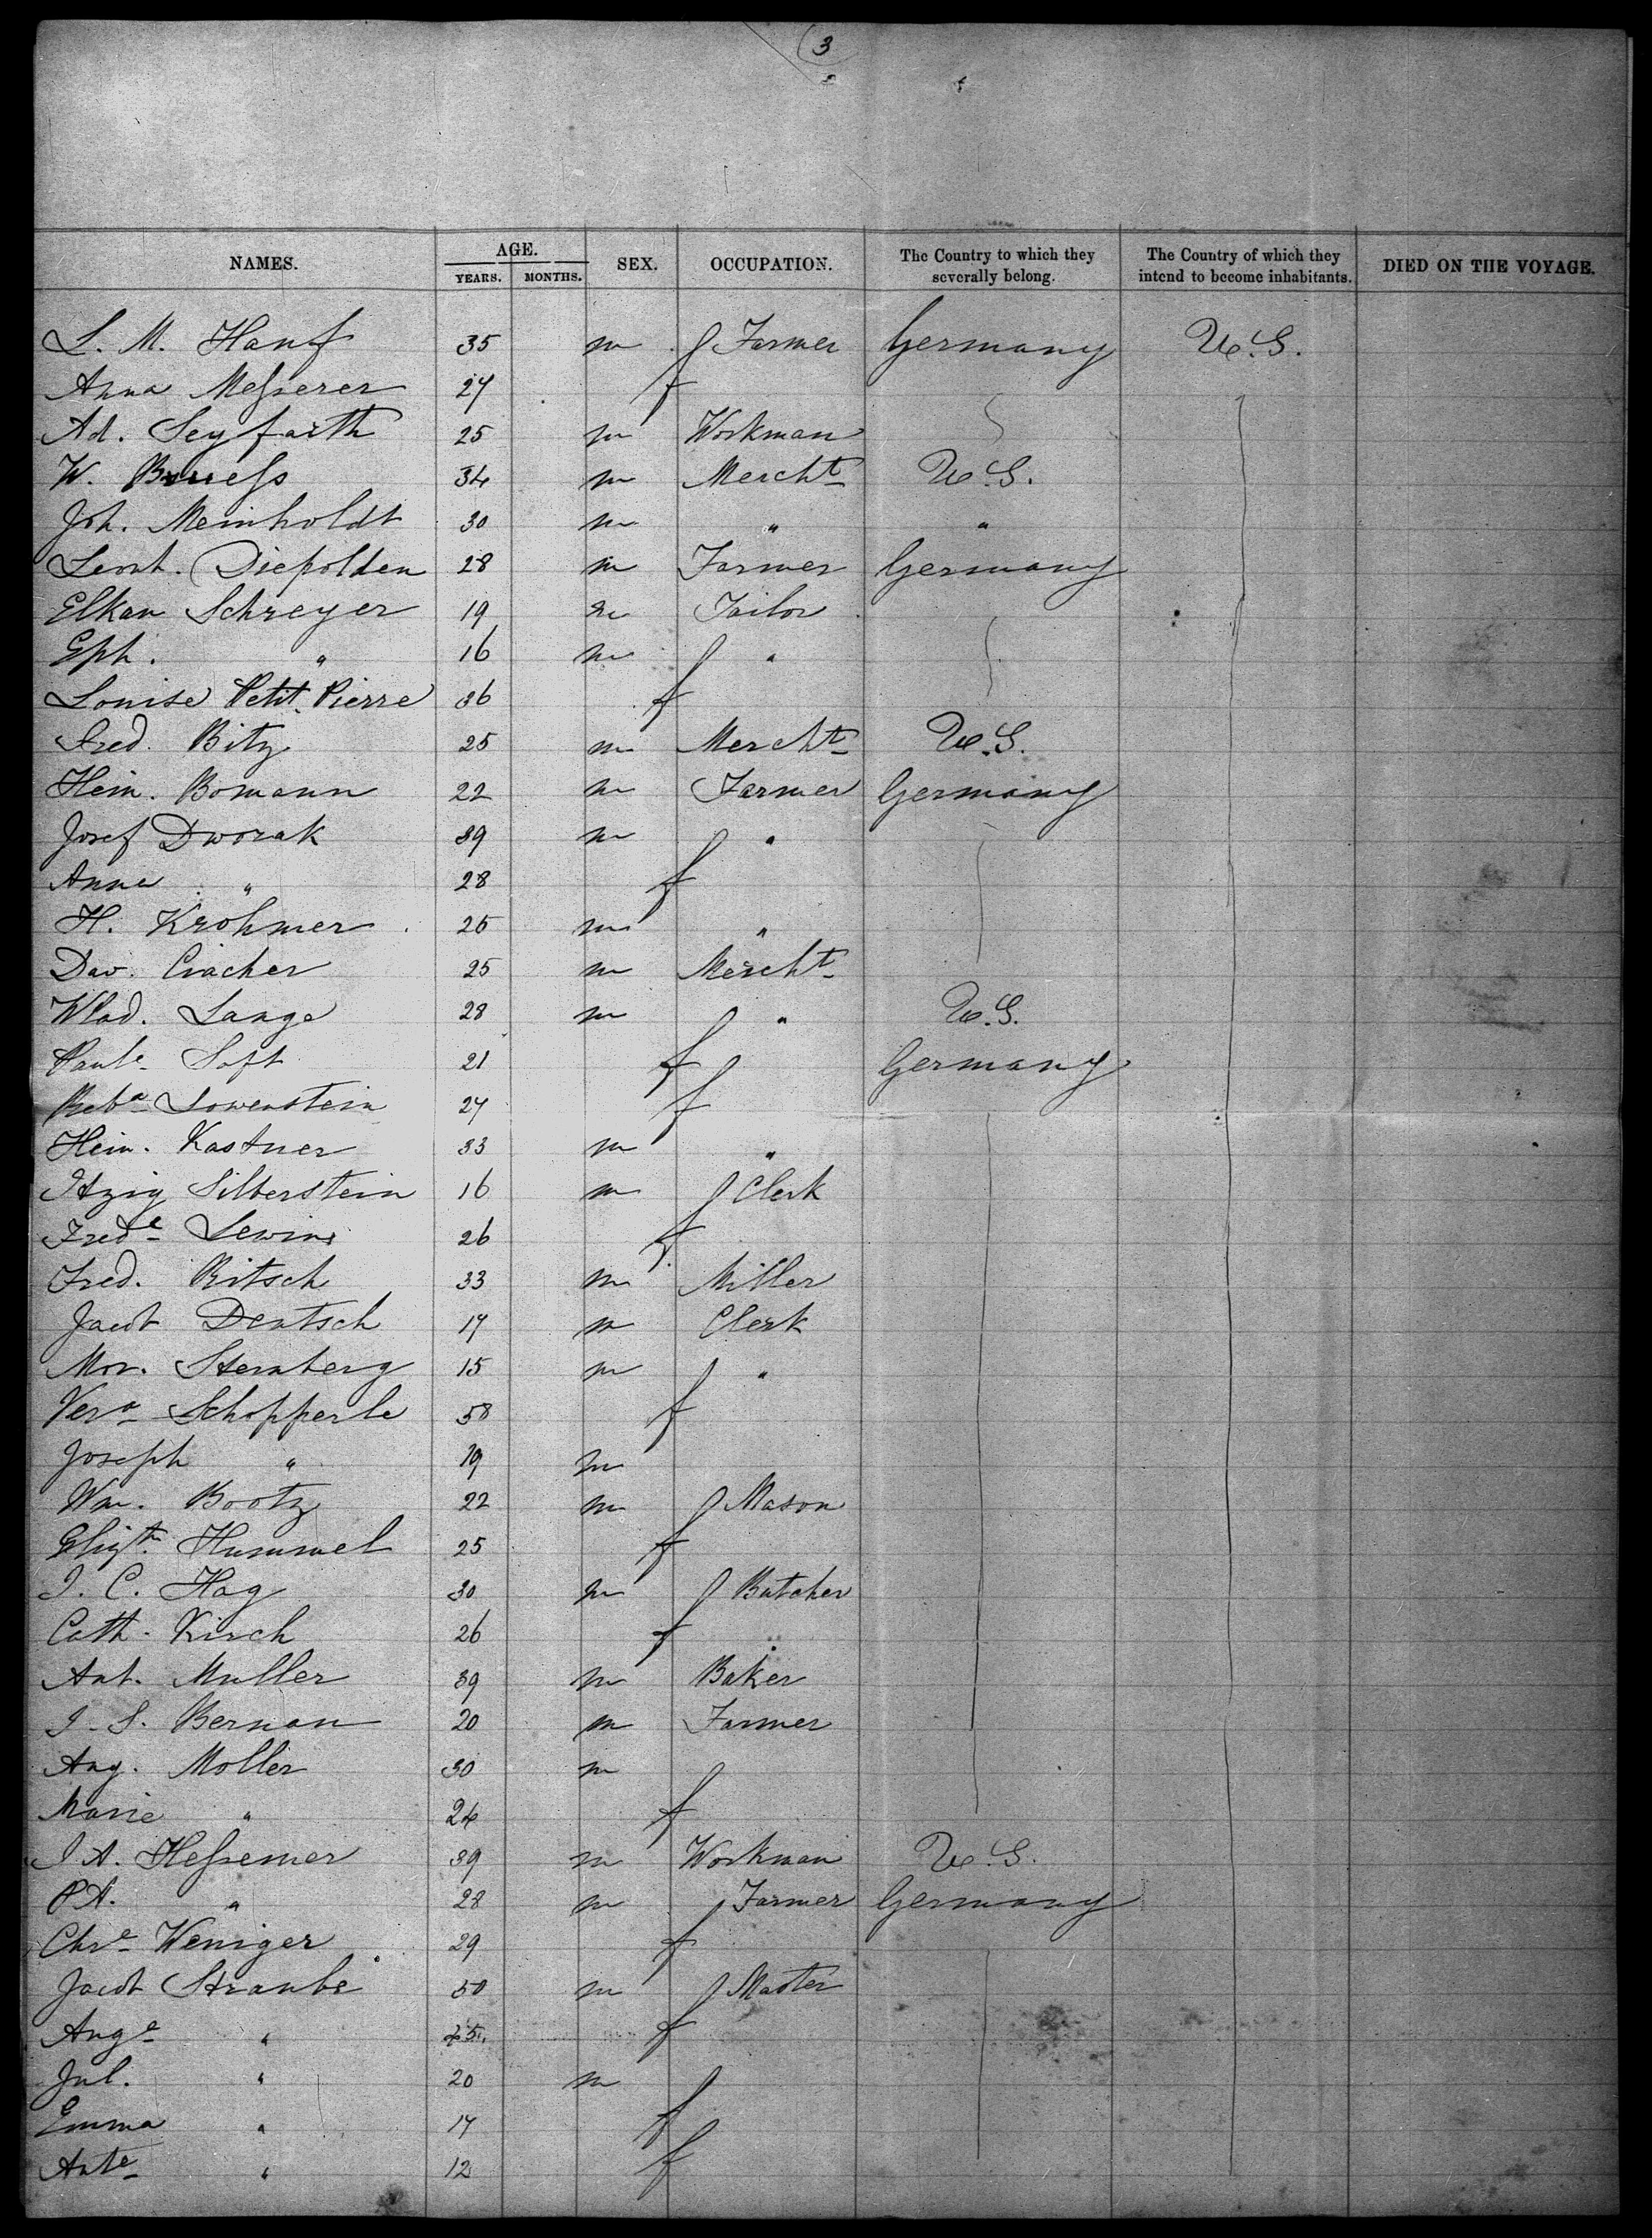 3
NAMES. AGE. YEARS. MONTHS. SEX. OCCUPATION. The Country to which they severally belong. The Country of which they intend to become inhabitants. DIED ON THE VOYAGE.
L. M. Hanf 35 m Farmer Germany U.S.
Anna Messerer 27 f
Ad. Seyfarth 25 m Workman
W. Bruess 34 m Mercht U.S.
Joh. Meinholdt 30 m " "
Leont. Diepolden 28 m Farmer Germany
Elkan Schreyer 19 m Tailor
Eph. " 16 m "
Louise Petit Pierre 36 f
Fred. Bitz 25 m Mercht U.S.
Hein. Bomann 22 m Farmer Germany
Josef Dworak 39 m "
Anna " 28 f
H. Krohmer 25 m "
Dav. Ciacher 25 m Mercht
Wlad. Lange 28 m " U.S.
Paule Soft 21 f Germany
Reba Lowenstein 27 f
Hein. Kastner 33 m "
Itzig Silberstein 16 m Clerk
Frede Lewin 26 f
Fred. Ritsch 33 m Miller
Jacob Deutsch 17 m Clerk
Mor. Sternberg 15 m "
Vera Schopperle 58 f
Joseph " 19 m
Wm. Bootz 22 m Mason
Elizth Hummel 25 f
J. C. Hag 30 m Butcher
Cath. Kirsch 26 f
Ant. Muller 39 m Baker
J. S. Bernan 20 m Farmer
Aug. Moller 30 m
Marie " 24 f
J A. Hessemer 39 m Workman U.S.
P A. " 28 m Farmer Germany
Chre Weniger 29 f
Jacob Straube 50 m Master
Auge " 45 f
Jul. " 20 m
Emma " 17 f
Ante " 12 f